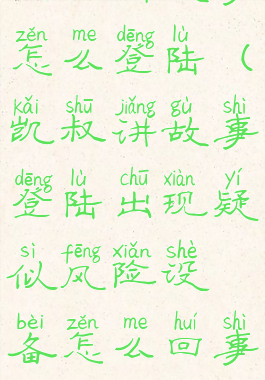 zěn me dēng lù
怎么登陆（
kǎi shū jiǎng gù shì
凯叔讲故事
dēng lù chū xiàn yí
登陆出现疑
sì fēng xiǎn shè
似风险设
bèi zěn me huí shì
备怎么回事